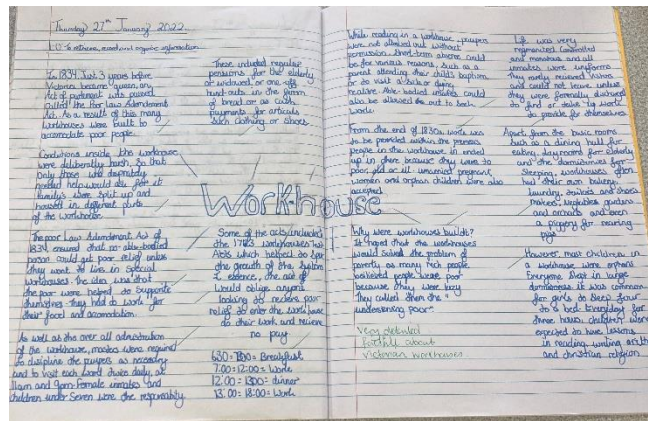 Thursday 27th January 2022
L.O To retrieve, record and organise information
In 1834, Just 3 years before
Victoria became queen, an
Act of parliament was passed
called the Poor Law Admendment
Act. As a result of this many
Workhouses were built to
accomodate poor people.
Conditions inside the workhouse
were deliberatly harsh, so that
only those who
needed help would ask for it
family's were split up and
housed in different parts
of the workhouse.
The poor Law Admendment Act of
1834 ensured that no able-bodied
person could get poor relief unless
they went to live in special
workhouses. The idea was that
the poor were helped to support
themselves. They had to work for
their food and accomodation.
As well as the over all administration
of the workhouse, masters were required
to discipline the paupers as necessary
and to visit each ward twice daily, at
11am and 9pm. Female inmates and
children under Seven were the responsibility
These included regular
pensions for the elderly
or widowed or one-off
hand-outs in the form
of bread or as cash
payments for articals
such clothing or shoes
Workhouse
Some of the acts included
the 1723 workhouses Test
Acts which helped to spur
the growth of the System
In essence, the act
would oblige anyone
looking to recieve poor
relief to enter the workhouse
do their work and recieve
no pay
6:30 = 7:00 = Breakfast
7:00 = 12:00 = Work
12:00 = 13:00 = dinner
13:00 = 18:00 = Work
While residing in a workhouse, paupers
were not allowed out without
permission. Short-term absence could
be for various reasons, such as a
parent attending their child's baptism
or to visit a sick or dying
relative. Able-bodied inmates could
also be allowed out to seek
work.
From the end of 1830s, work was
to be provided within the
people in the workhouse in ended
up in there because they were to
poor, old or ill unmarried pregnant
women and orphan children were also
accepted.
Why were workhouses built?
It hoped that the workhouses
would solve the problem of
poverty as many rich people
believed people were poor
because they were lazy
They called them the "
undeserving poor"
Very detailed
facthfile about
Victorian workhouses
Life was very
regimented controlled
and monotous and all
inmates wore uniforms
They rarely recieved visitors
and could not leave unless
they were formally discharged
to find or take up work
to provide for themselves
Apart from the basic rooms
such as a dining hall for
eating, dayrooms for elderly
and the dormitories for
sleeping, workhouses often
had their own bakery
laundry, tailors and shoes
makers, vegetables gardens
and orchards and even
a piggery for rearing
pigs
However most children in
a workhouse were orphans
Everyone slept in large
dormitories it was common
for girls to sleep four
to a bed. Everyday for
three hours, children were
expected to have lessons
in reading, writing, arith
and christian religion